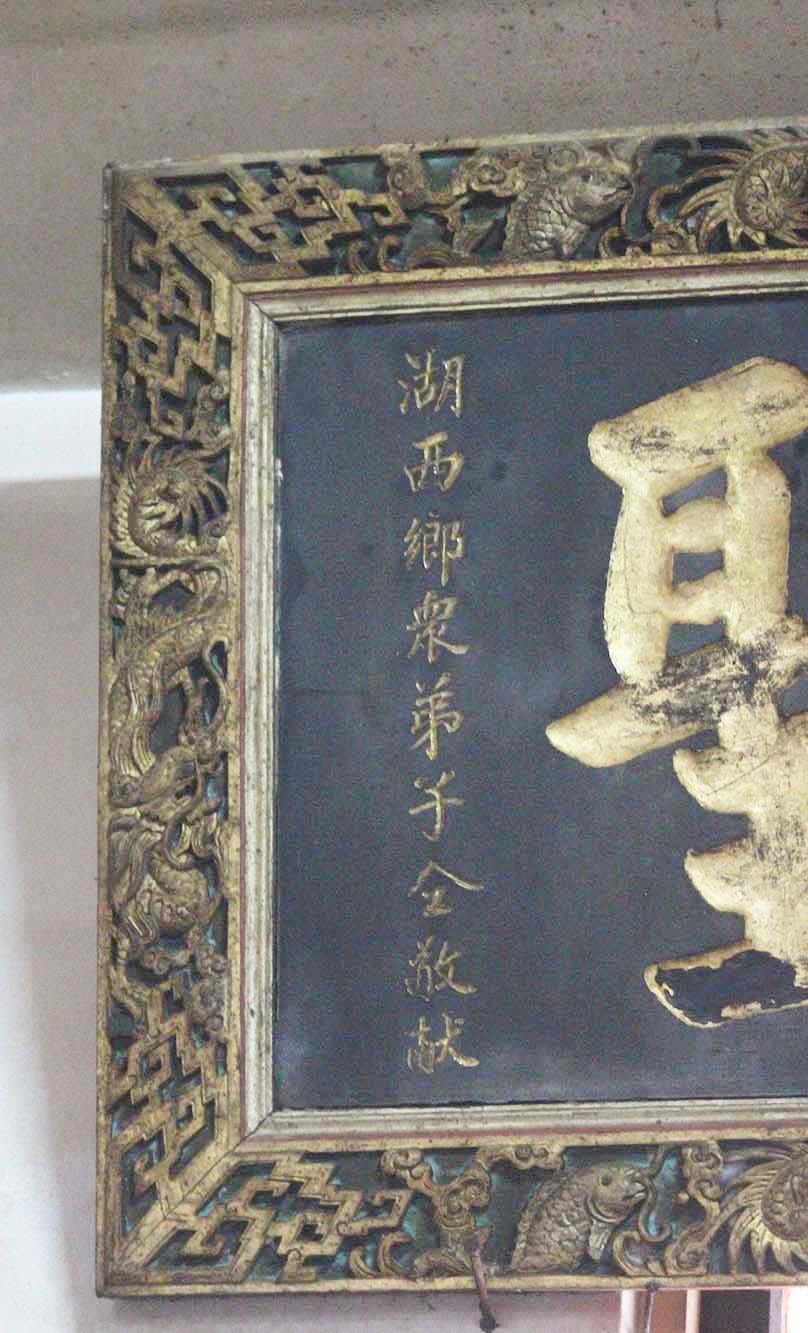 聖
湖西鄉衆弟子仝敬献